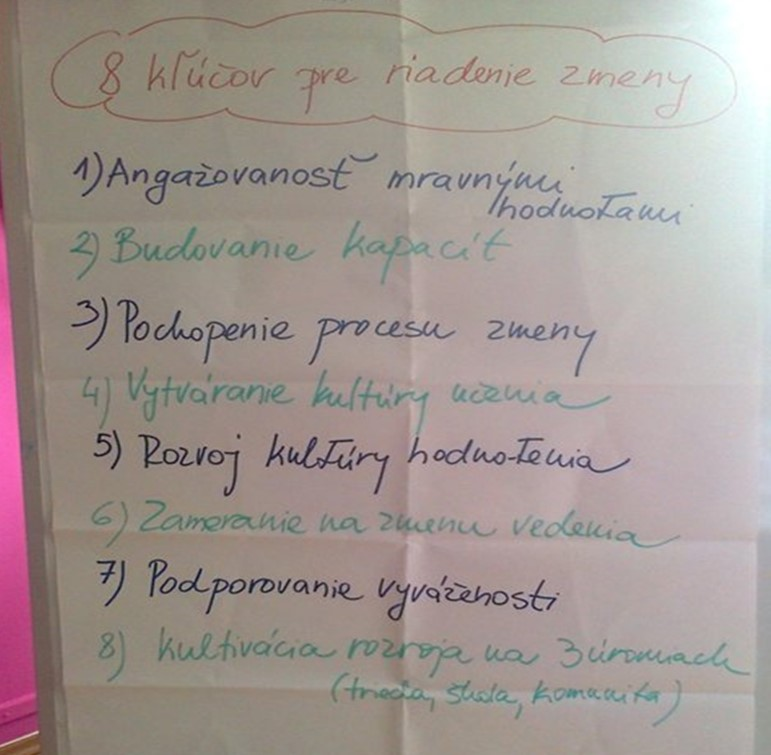 8 kľúčov pre riadenie zmeny
1) Angažovanosť mravnými
hodnotami
2) Budovanie kapacít
3) Pochopenie procesu zmeny
4) Vytváranie kultúry učenia
5) Rozvoj kultúry hodnotenia
6) Zameranie na zmenu vedenia
7) Podporovanie vyváženosti
8) Kultivácia rozvoja na 3 úrovniach
(trieda, škola, komunita)